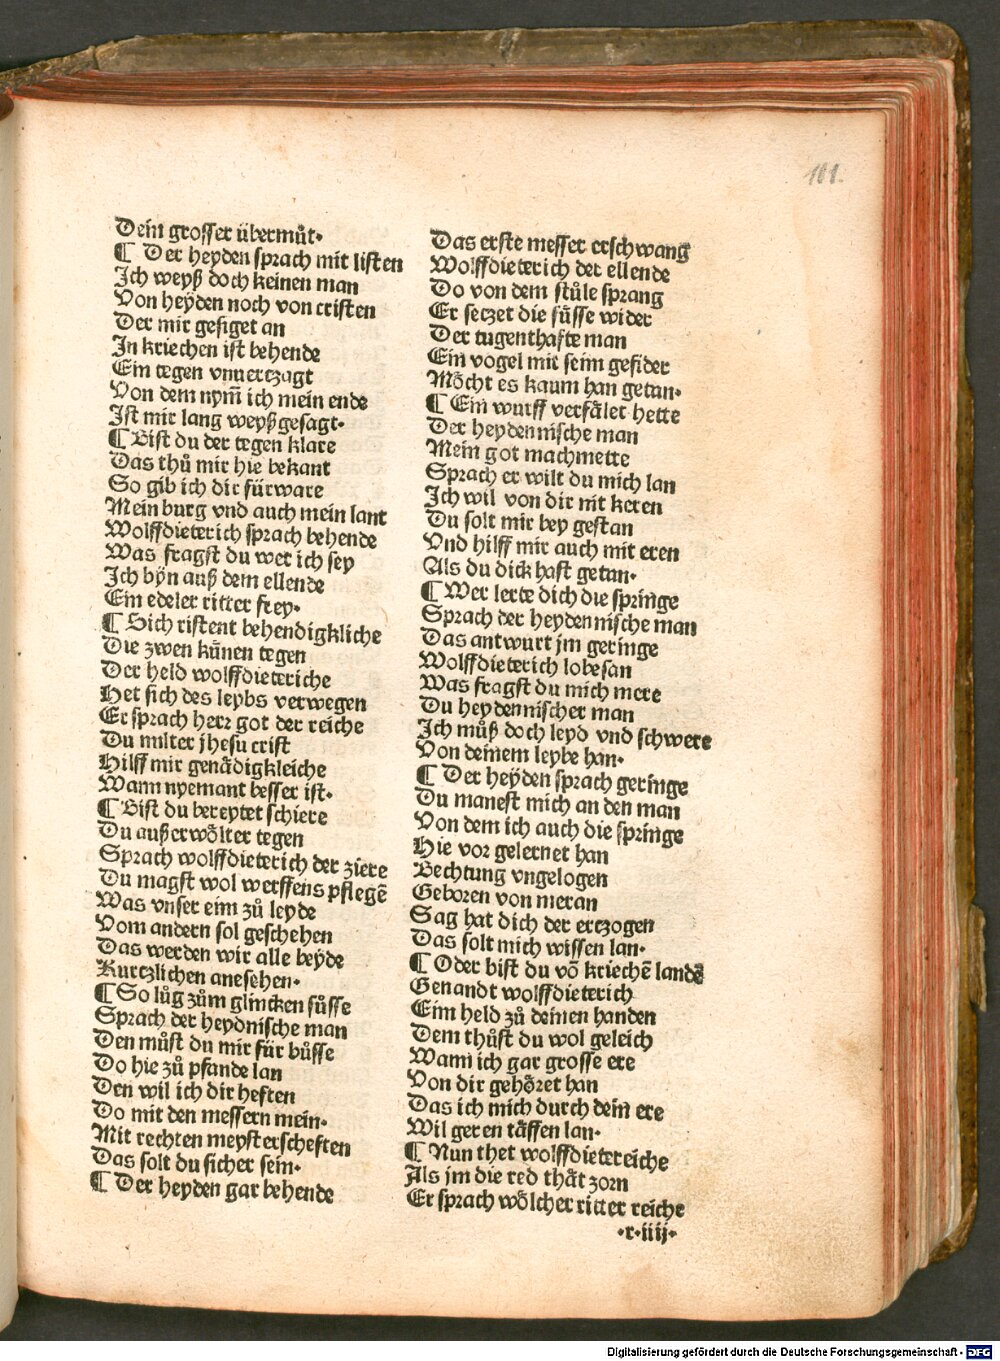 101.
Dein grosser übermůt.
¶ Der heyden sprach mit listen
Ich weyß doch keinen man
Von heyden noch von cristen
Der mir gesiget an
In kriechen ist behende
Ein tegen vnuertzagt
Von dem nym̄ ich mein ende
Ist mir lang weyßgesagt.
¶ Bist du der tegen klare
Das thů mir hie bekant
So gib ich dir fürware
Mein burg vnd auch mein lant
Wolffdieterich sprach behende
Was fragst du wer ich sey
Ich byn auß dem ellende
Ein edeler ritter frey.
¶ Sich ristent behendigkliche
Die zwen kůnen tegen
Der held wolffdieteriche
Het sich des leybs verwegen
Er sprach herr got der reiche
Du milter jhesu crist
Hilff mir genådigkleiche
Wann nyemant besser ist.
¶ Bist du bereytet schiere
Du außerwölter tegen
Sprach wolffdieterich der ziere
Du magst wol werffens pflegē
Was vnser eim zů leyde
Vom andern sol geschehen
Das werden wir alle beyde
Kurtzlichen anesehen.
¶ So lůg zům glincken fůsse
Sprach der heydnische man
Den můst du mir für bůsse
Do hie zů pfande lan
Den wil ich dir heften
Do mit den messern mein.
Mit rechten meysterscheften
Das solt du sicher sein.
¶ Der heyden gar behende
Das erste messer erschwang
Wolffdieterich der ellende
Do von dem stůle sprang
Er seczet die fůsse wider
Der tugenthafte man
Ein vogel mit seim gefider
Möcht es kaum han getan.
¶ Ein wurff verfålet hette
Der heydennische man
Mein got machmette
Sprach er wilt du mich lan
Ich wil von dir nit keren
Du solt mir bey gestan
Vnd hilff mir auch mit eren
Als du dick hast getan.
¶ Wer lerte dich die springe
Sprach der heydennische man
Das antwurt jm geringe
Wolffdieterich lobesan
Was fragst du mich mere
Du heydennischer man
Ich můß doch leyd vnd schwere
Von deinem leybe han.
¶ Der heyden sprach geringe
Du manest mich an den man
Von dem ich auch die springe
Hie vor gelernet han
Bechtung vngelogen
Geboren von meran
Sag hat dich der erczogen
Das solt mich wissen lan.
¶ Oder bist du vō kriechē landē
Genandt wolffdieterich
Eim held zů deinen handen
Dem thůst du wol geleich
Wann ich gar grosse ere
Von dir gehöret han
Das ich mich durch dein ere
Wil geren tåffen lan.
¶ Nun thet wolffdietereiche
Als jm die red thåt zorn
Er sprach wölcher ritter reiche
.r.iiij.
Digitalisierung gefördert durch die Deutsche Forschungsgemeinschaft - DFG